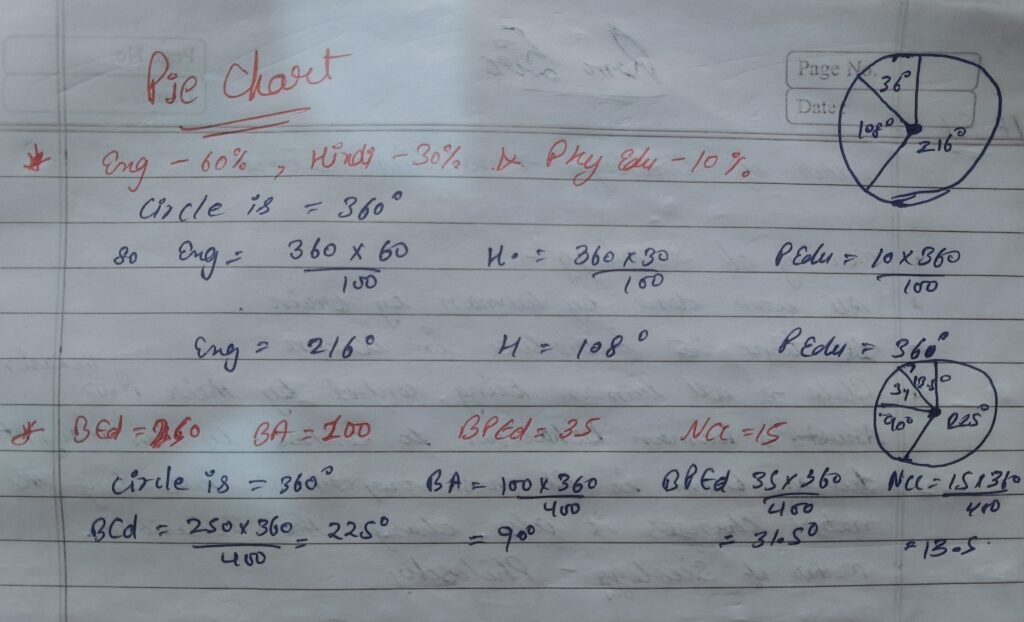 Pie Chart
Page No.
Date
36°
108°
216°
* Eng - 60%, Hindi - 30% & Phy Edu - 10%.
Circle is = 360°
so Eng = 360 x 60 / 100 H. = 360 x 30 / 100 PEdu = 10 x 360 / 100
Eng = 216° H = 108° PEdu = 360°
13.5°
90° 225°
* BEd = 250 BA = 100 BPEd = 35 NCC = 15
Circle is = 360° BA = 100 x 360 / 400 BPEd 35 x 360 / 400 NCC = 15 x 360 / 400
BEd = 250 x 360 / 400 = 225° = 90° = 31.5° = 13.5